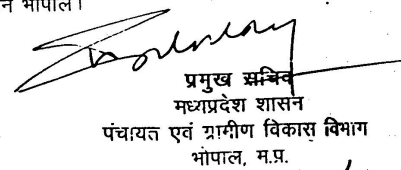 न भोपाल।
प्रमुख सचिव
मध्यप्रदेश शासन
पंचायत एवं ग्रामीण विकास विभाग
भोपाल, म.प्र.